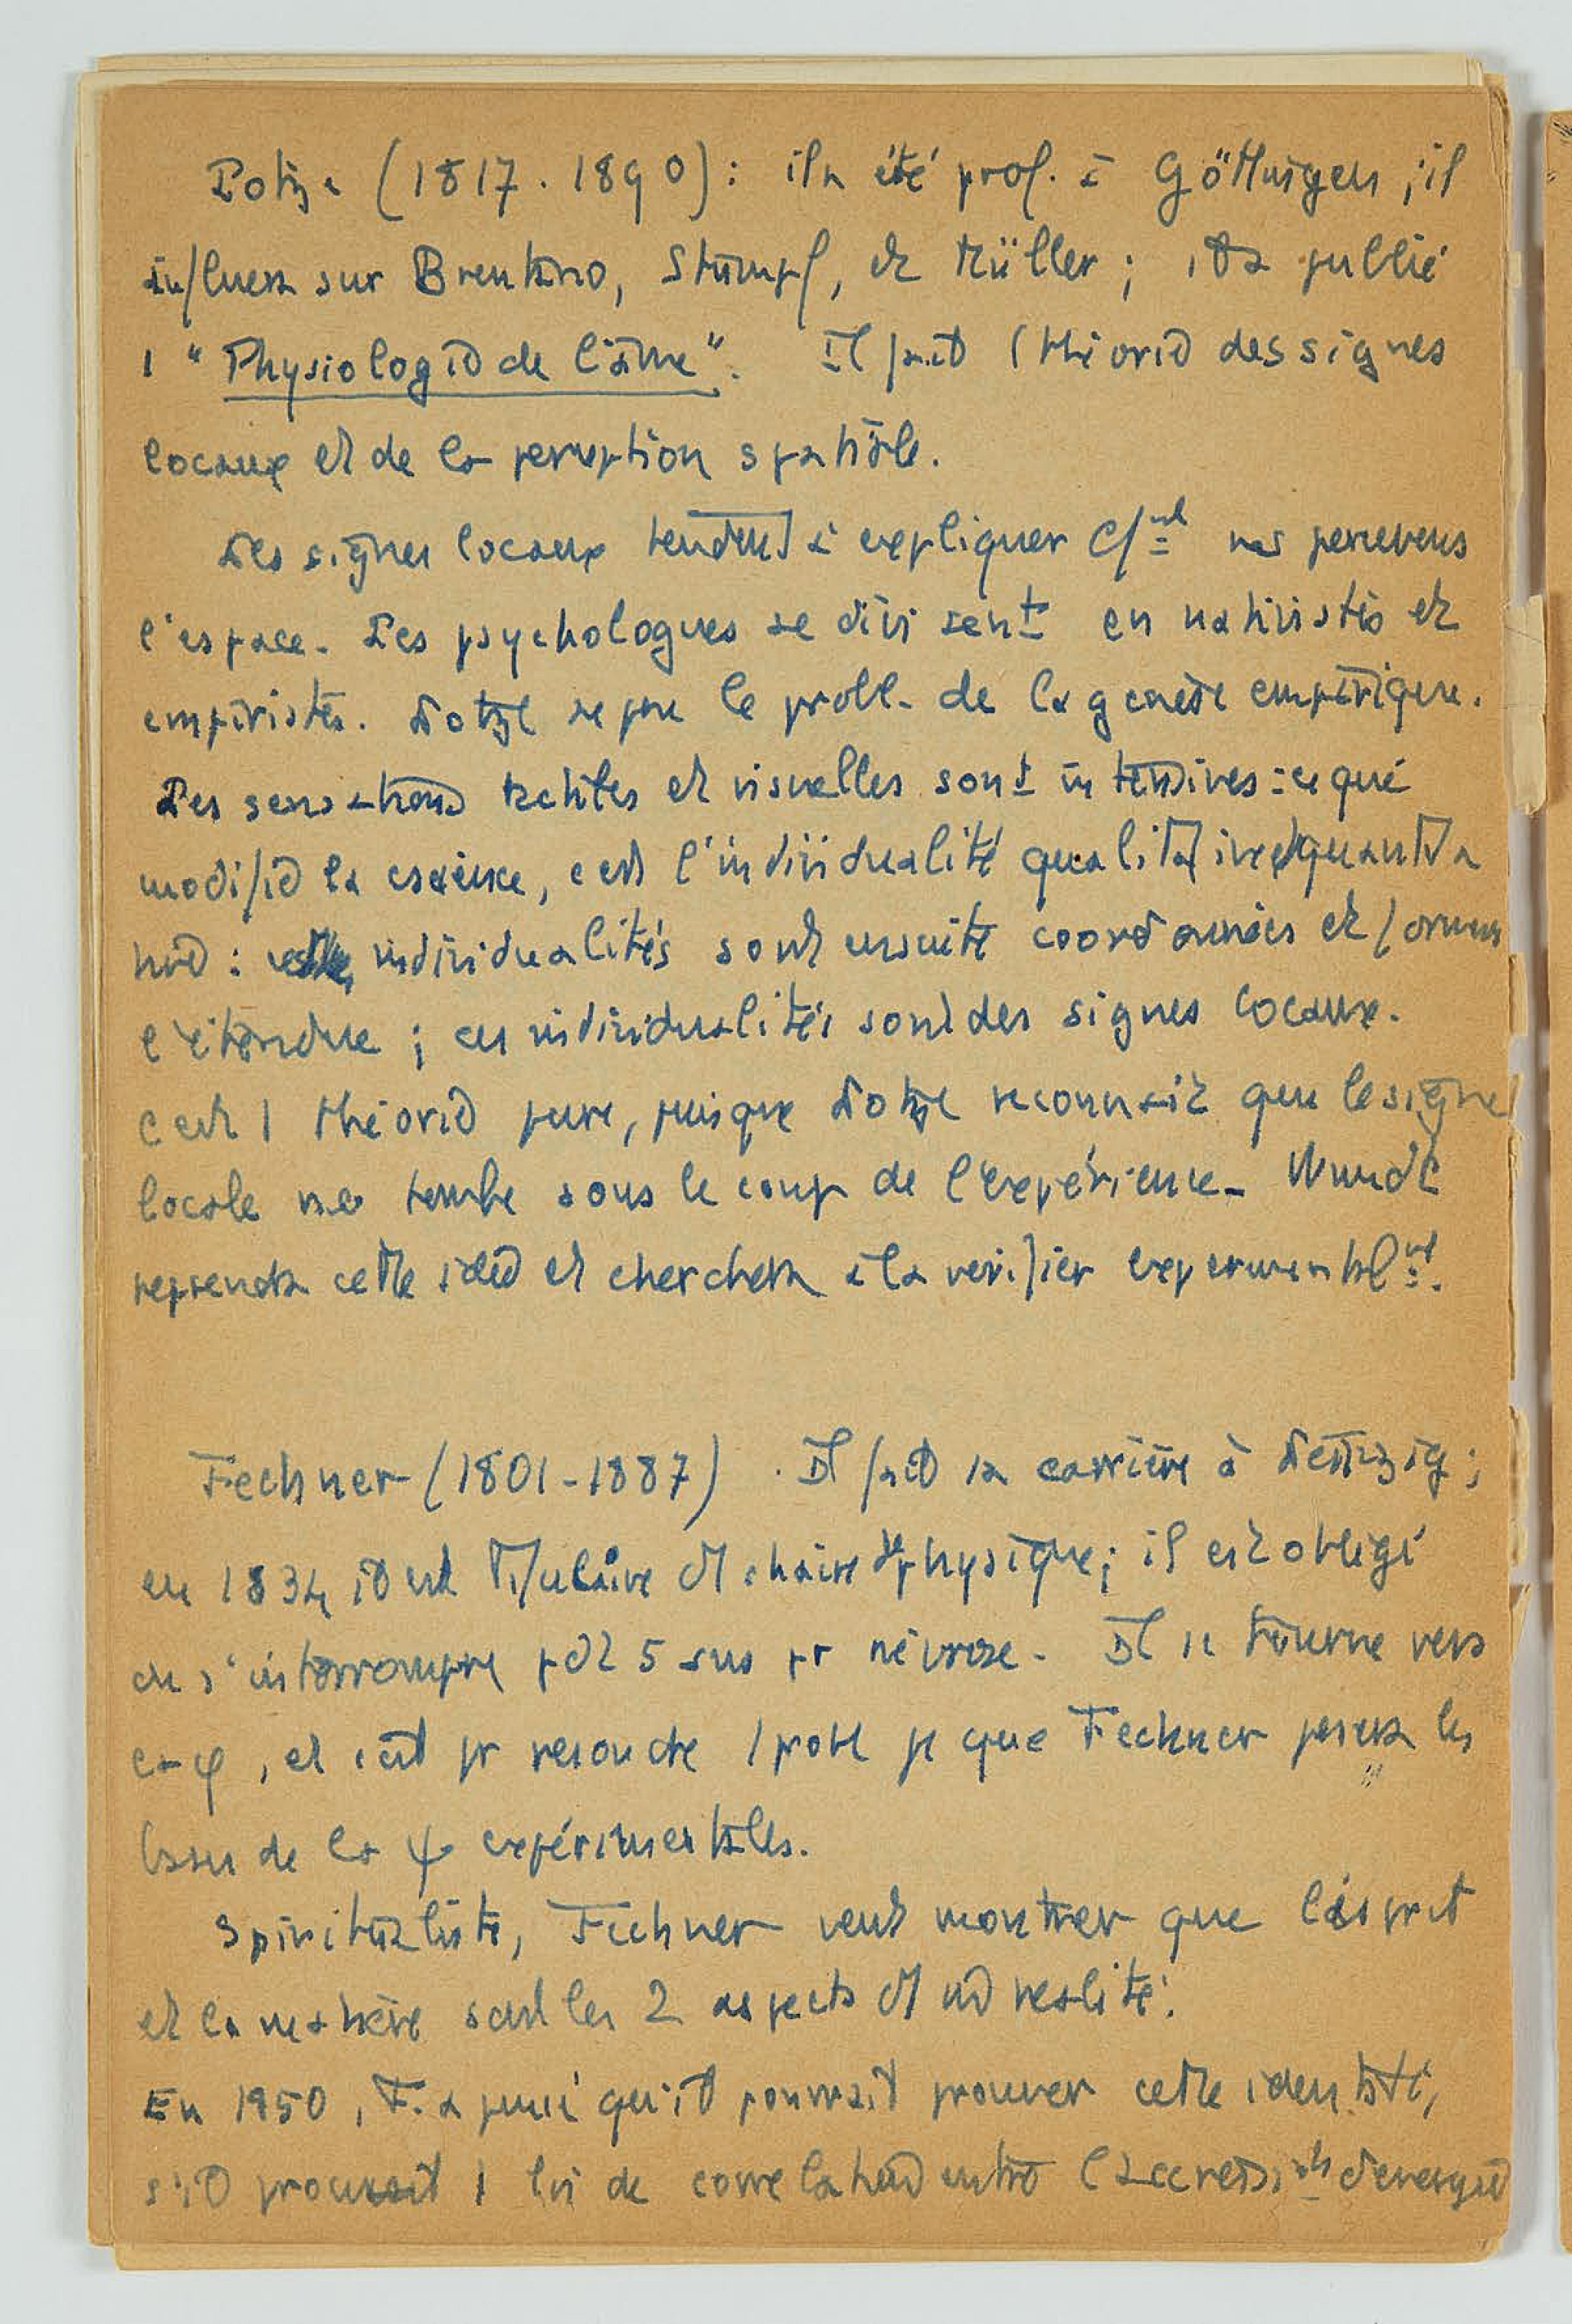 Lotze (1817-1890) : il a été prof. à Göttingen ; il
influera sur Brentano, Stumpf, et Müller ; il a publié
1 "Physiologie de l'âme". Il fait 1 théorie des signes
locaux et de la perception spatiale.
Les signes locaux tendent à expliquer c/nt ns percevons
l'espace. Les psychologues se divisent en nativistes et
empiristes. Lotze se pose le probl. de la genèse empirique.
Les sensations tactiles et visuelles sont intensives : ce qui
modifie la cscience, c'est l'individualité qualitative et quantita
tive : individualités sont ensuite coordonnées et forment
l'étendue ; ces individualités sont des signes locaux.
C'est 1 théorie pure, puisque Lotze reconnaît que le signe
locale ne tombe sous le coup de l'expérience. Wundt
reprendra cette idée et cherchera à la vérifier experimentalnt.
Fechner (1801-1887). Il fait sa carrière à Leipzig ;
en 1834, il est titulaire d'1 chaire de physique ; il est obligé
de s'interrompre pdt 5 ans pr névrose. Il se tourne vers
la φ, et c'est pr resoudre 1 probl φ que Fechner posera les
bases de la ψ expérimentales.
Spiritualiste, Fechner veut montrer que l'esprit
et la matière sont les 2 aspects d'1 mê realité.
En 1950, F. a pensé qu'il pourrait prouver cette identité,
s'il prouvait 1 loi de correlation entre l'accroissnt d'energie